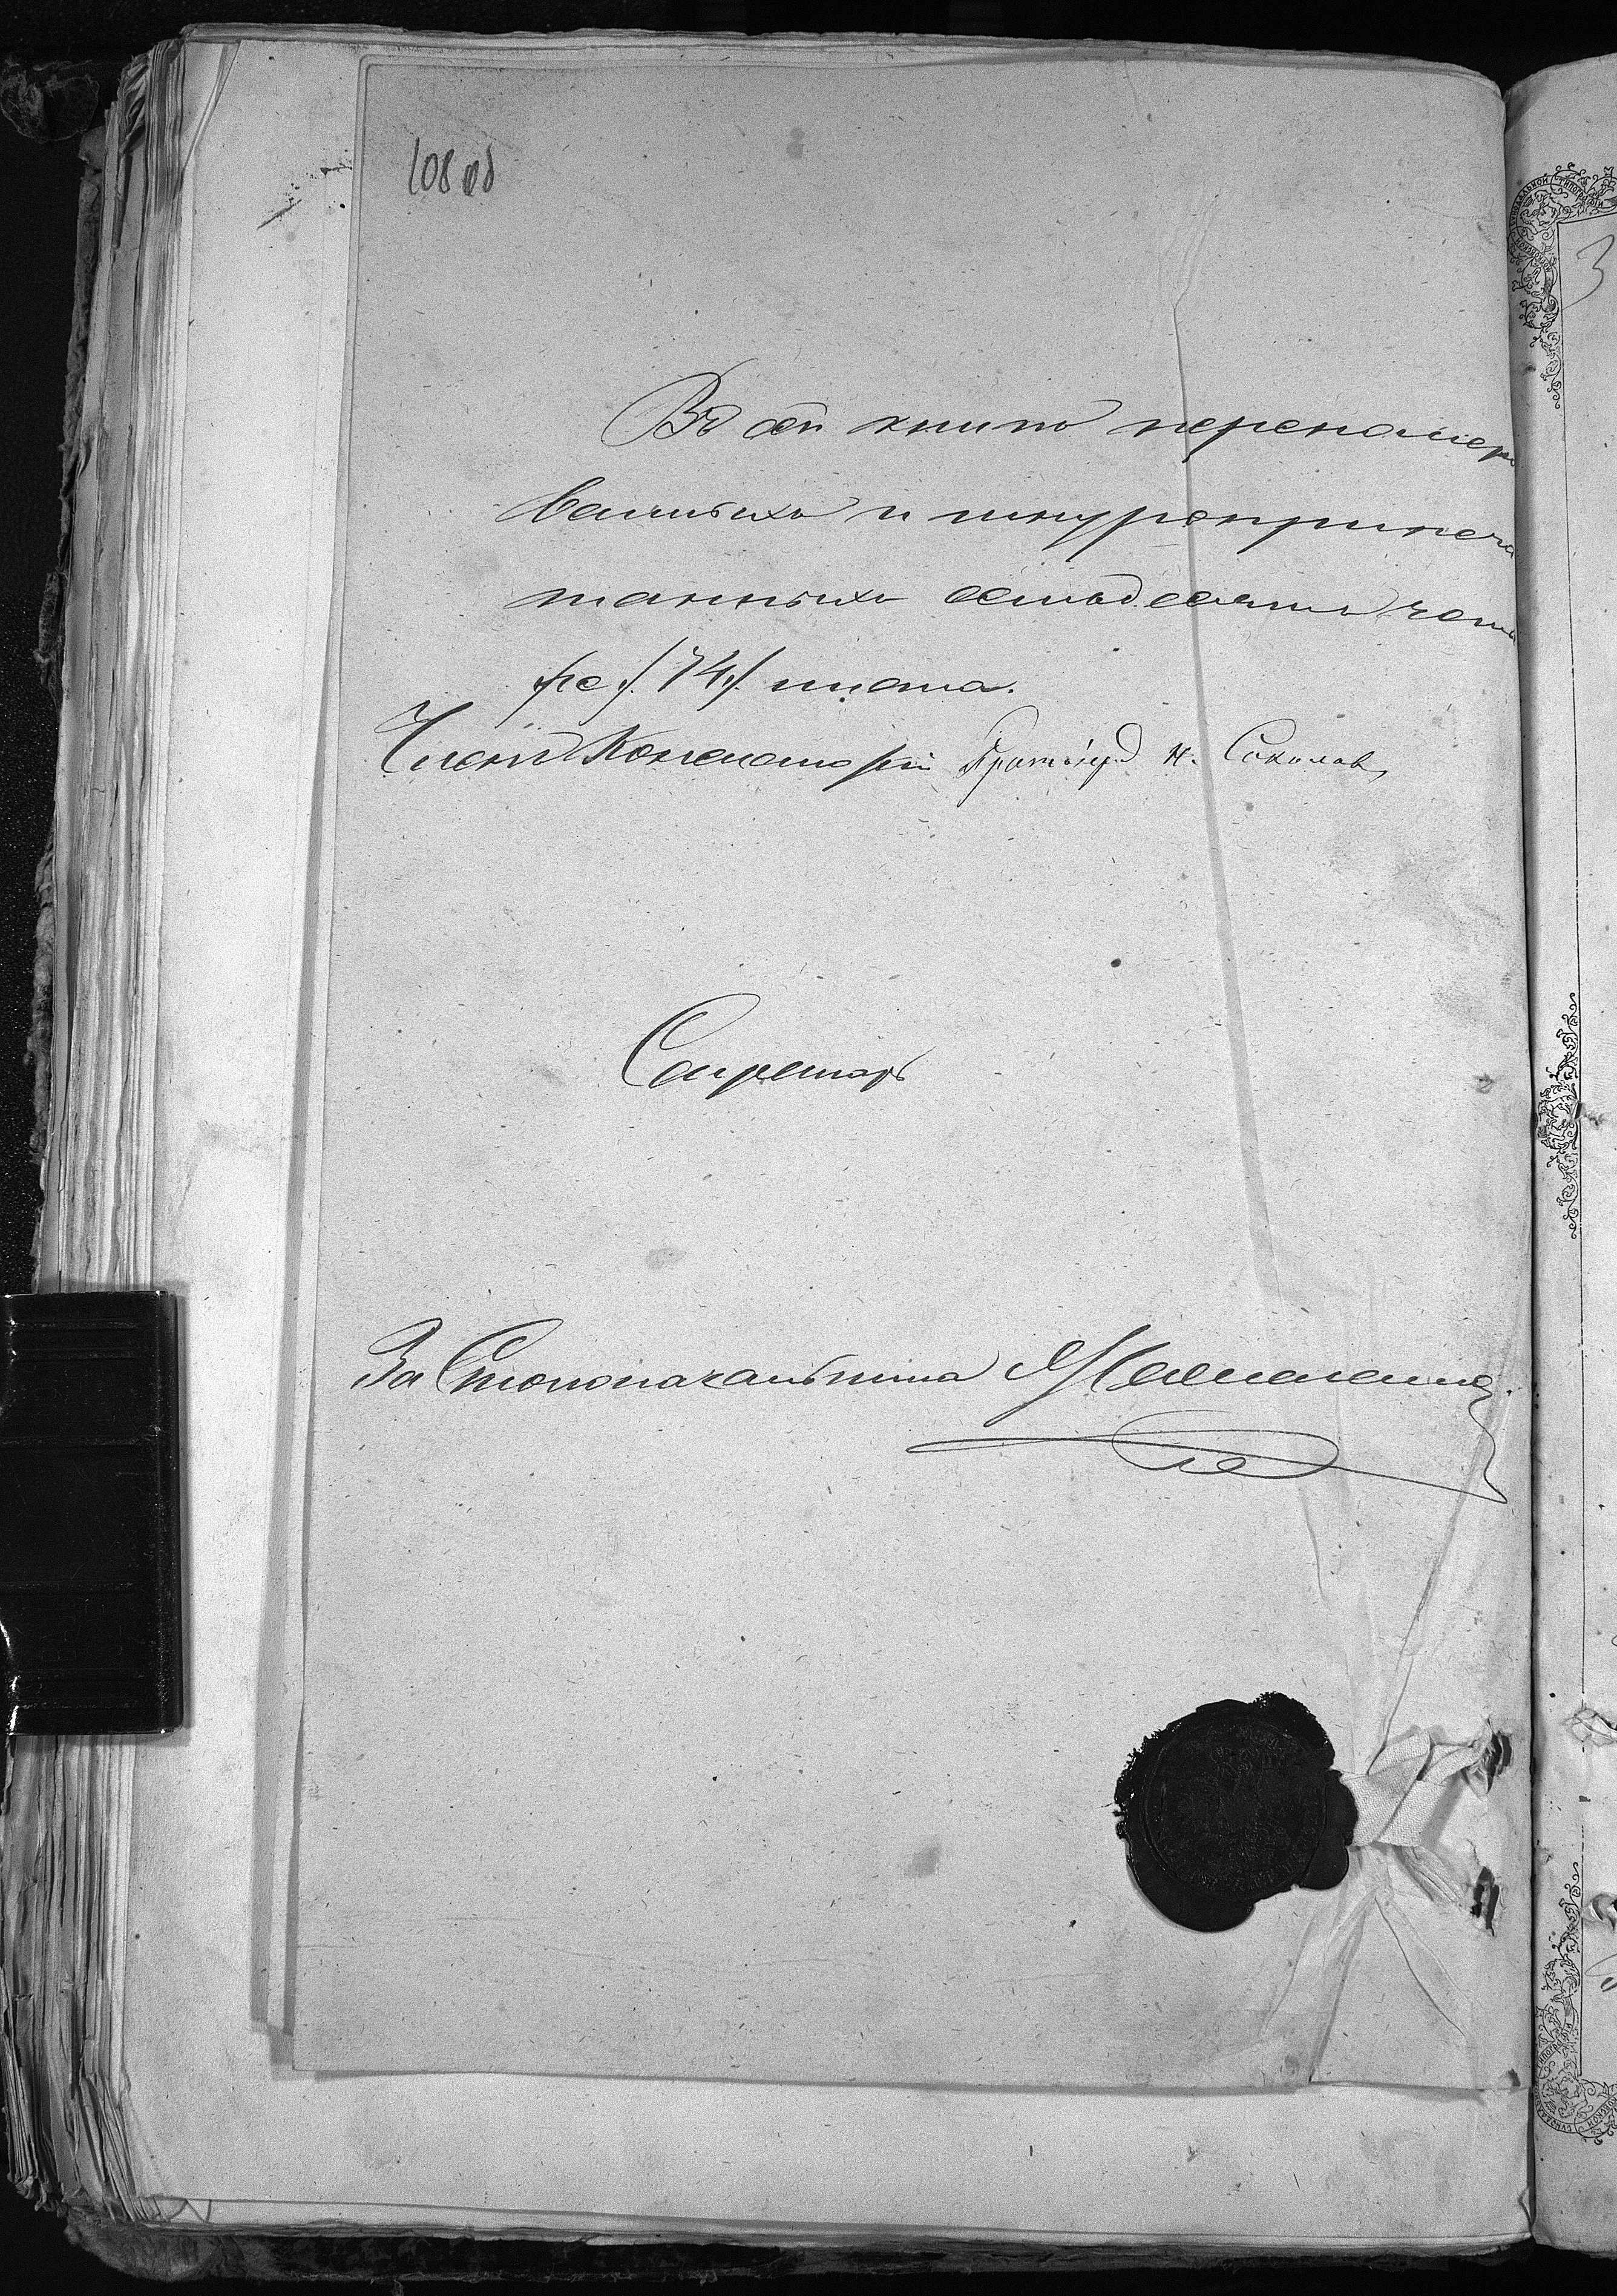 108 об
Въ сей книгѣ перенумеро
ванныхъ и шнуроприпеча
танныхъ семьдесятъ четы
ре /74/ листа.
Членъ Консисторіи Протоіерей Н. Соколовъ
Секретарь
За Столоначальника
3